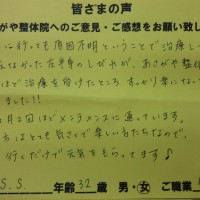 皆さまの声
がや整体院へのご意見・ご感想をお願い致し
に行っても原因不明ということで治療し
なかった左半身のしびれが、あさがや整体
ほど治療を受けたところ、すっかり楽になっ
ました!!
月2回ほどメンテナンスに通っています。
方はとても気さくで楽しい方たちなので、
行くだけで元気をもらってます♪
S.S. 年齢 32 歳 男・女 ご職業